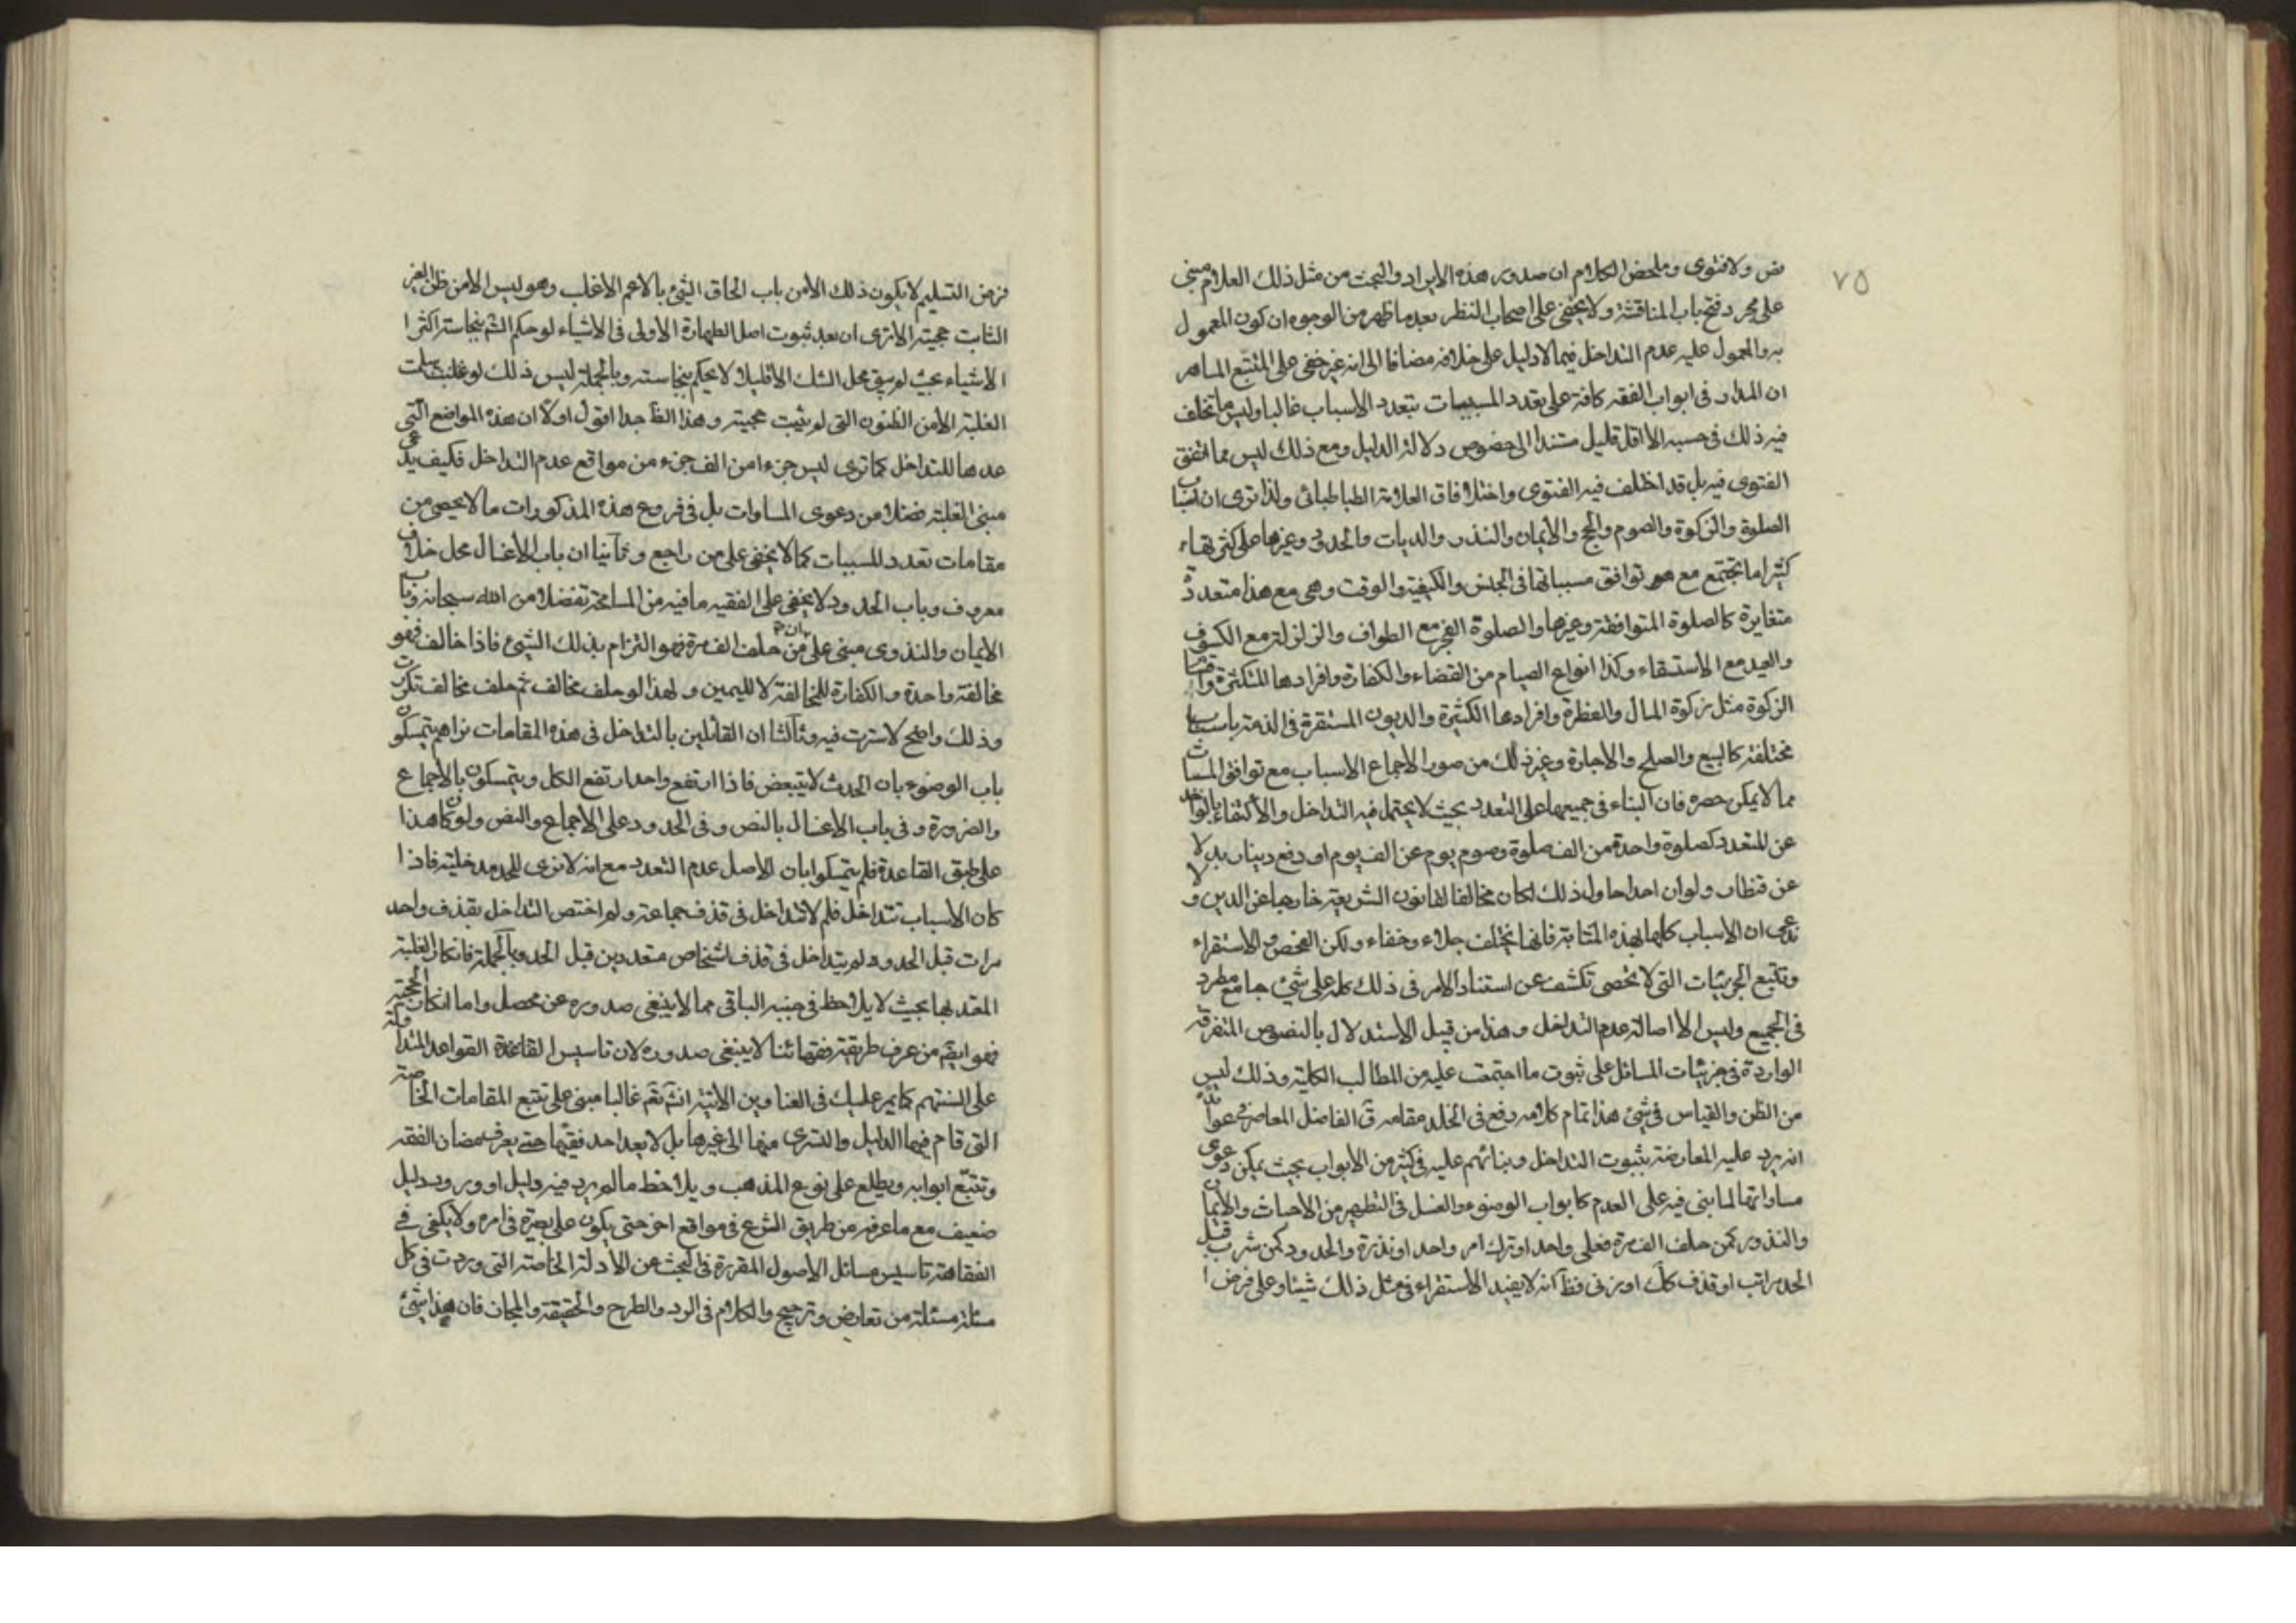 ٧٥
نص ولا فتوى وملخص الكلام ان صدور هذه الايراد والبحث من مثل ذلك العلام مبنى
على مجرد فتح باب المناقشة ولا يخفى على اصحاب النظر بعد ما ظهر من الوجوه ان كون المعمول
به والمعمول عليه عدم التداخل فيما لا دليل على خلافه مضافا الى انه غير خفى على المتتبع الماهر
ان المدار فى ابواب الفقه كافة على تعدد المسببات بتعدد الاسباب غالبا وليس ما تخلف
فيه ذلك فى حسبه الا اقل قليل مستندا الى خصوص دلالة الدليل ومع ذلك ليس مما اتفق
الفتوى فيه بل قد اختلف فيه الفتوى واختلافاق العلامة الطباطبائى ولذا ترى ان اسباب
الصلوة والزكوة والصوم والحج والايمان والنذر والديات والحدود وغيرها على كثرتها
كثيرا ما تجتمع مع توافق مسبباتها فى الجنس والكيفية والوقت وهى مع هذا متعددة
متغايرة كالصلوة المتوافقة وغيرها والصلوة الفجر مع الطواف والزلزلة مع الكسوف
والعيد مع الاستسقاء وكذا انواع الصيام من القضاء والكفارة وافرادها المتكثرة واقسام
الزكوة مثل زكوة المال والفطرة وافرادها الكثيرة والديون المستقرة فى الذمة باسباب
مختلفة كالبيع والصلح والاجارة وغير ذلك من صور الاجماع الاسباب مع توافق المسببات
مما لا يمكن حصره فان البناء فى جميعها على التعدد بحيث لا يحتمل فيه التداخل والاكتفاء بالواحد
عن المتعدد كصلوة واحدة من الف صلوة وصوم يوم عن الف يوم او دفع دينار بدلا
عن قنطار ولو ان احدا حاول ذلك لكان مخالفا لقانون الشريعة خارجا عن الدين ولا
ندعى ان الاسباب كلها بهذه المثابة فانها تختلف جلاء وخفاء ولكن الفحص والاستقراء
وتتبع الجزئيات التى لا تحصى تكشف عن استناد الامر فى ذلك كله على شئ جامع مطرد
فى الجميع وليس الا اصالة عدم التداخل وهذا من قبيل الاستدلال بالنصوص المتفرقة
الواردة فى جزئيات المسائل على ثبوت ما اجتمعت عليه من المطالب الكلية وذلك ليس
من الظن والقياس فى شئ هذا تمام كلامه رفع فى الخلد مقامه ق الفاضل المعاصر فى عوائده
انه يرد عليه المعارضة بثبوت التداخل وبنائهم عليه فى كثير من الابواب بحيث يمكن دعوى
مساواتها لما بنى فيه على العدم كابواب الوضوء والغسل فى التطهير من الاحداث والايمان
والنذور كمن حلف الف مرة فعلى واحد او ترك امر واحد او نذره والحدود كمن شرب قبل
الحد مراتب او قذف كك او زنى فظ انه لا يفيد الاستقراء فى مثل ذلك شيئا وعلى فرض
فرض التسليم لا يكون ذلك الا من باب الحاق الشئ بالاعم الاغلب وهو ليس الا من ظن الغير
الثابت حجيته الا ترى ان بعد ثبوت اصل الطهارة الاولى فى الاشياء لو حكم الشم بنجاسة اكثر
الاشياء بحيث لم يبق محل الشك الا قليلا لا يحكم بنجاسته وبالجملة ليس ذلك لو غلبت سلمت
الغلبة الا من الظنون التى لم يثبت حجيته وهذا الظ جدا اقول اولا ان هذه المواضع التى
عدها للتداخل كما ترى ليس جزءا من الف جزء من مواقع عدم التداخل فكيف يدعى
مبنى الغلبة فضلا من دعوى المساوات بل فى فروع هذه المذكورات ما لا يحصى من
مقامات تعدد المسببات كما لا يخفى على من راجع وثانيا ان باب الاغسال محل خلاف
معروف وباب الحدود لا يخفى على الفقيه ما فيه من المسامحة تفضلا من الله سبحانه وباب
الايمان والنذور مبنى على ان من حلف الف مرة فهو التزام بذلك الشئ فاذا خالف فهو
مخالفة واحدة والكفارة للمخالفة لا لليمين ولهذا لو حلف مخالف ثم حلف مخالف تكررت
وذلك واضح لا سترت فيه وثالثا ان القائلين بالتداخل فى هذه المقامات نراهم يتمسكون
باب الوضوء بان الحدث لا يتبعض فاذا ارتفع واحد ارتفع الكل ويتمسكون بالاجماع
والضرورة وفى باب الاغسال بالنص وفى الحدود على الاجماع والنص ولو كان هذا
على طبق القاعدة فلم يتمسكوا بان الاصل عدم التعدد مع انه لا نرى للحد مدخلية فاذا
كان الاسباب تتداخل فلم لا تتداخل فى قذف جماعة ولم اختص التداخل بقذف واحد
مرات قبل الحد ولم يتداخل فى قذف اشخاص متعددين قبل الحد وبالجملة فانكار الغلبة
المعتد بها بحيث لا يلاحظ فى جنبه الباقى مما لا ينبغى صدوره عن محصل واما انكار الحجية
فهو ايضم من عرف طريقة فقهائنا لا ينبغى صدوره لان تاسيس القاعدة القواعد المتداولة
على السنتهم كما يمر عليك فى العناوين الاتية انش تم غالبا مبنى على تتبع المقامات الخاصة
التى قام فيها الدليل والتسرى منها الى غيرها بل لا يعد احد فقيها حتى يعرف مضان الفقه
وتتبع ابوابه ويطلع على نوع المذهب ويلاحظ ما لم يرد فيه دليل او ورود دليل
ضعيف مع ما عرفه من طريق الشرع فى مواقع اخر حتى يكون على بصيرة فى امره ولا يكفى فى
الفقاهة تاسيس مسائل الاصول المقررة فى البحث عن الادلة الخاصة التى وردت فى كل
مسئلة مسئلة من تعارض وترجيح والكلام فى الورد والطرح والحقيقة والمجاز فان هذا شئ